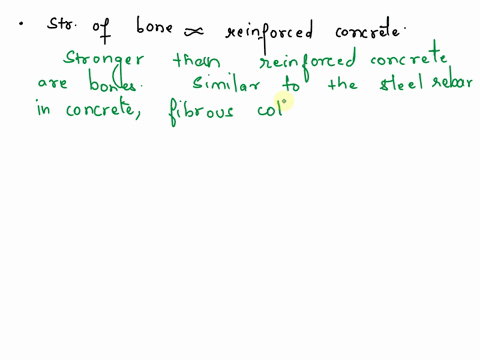 • Str. of bone ∝ reinforced concrete.
Stronger than reinforced concrete
are bones. Similar to the steel rebar
in concrete, fibrous col